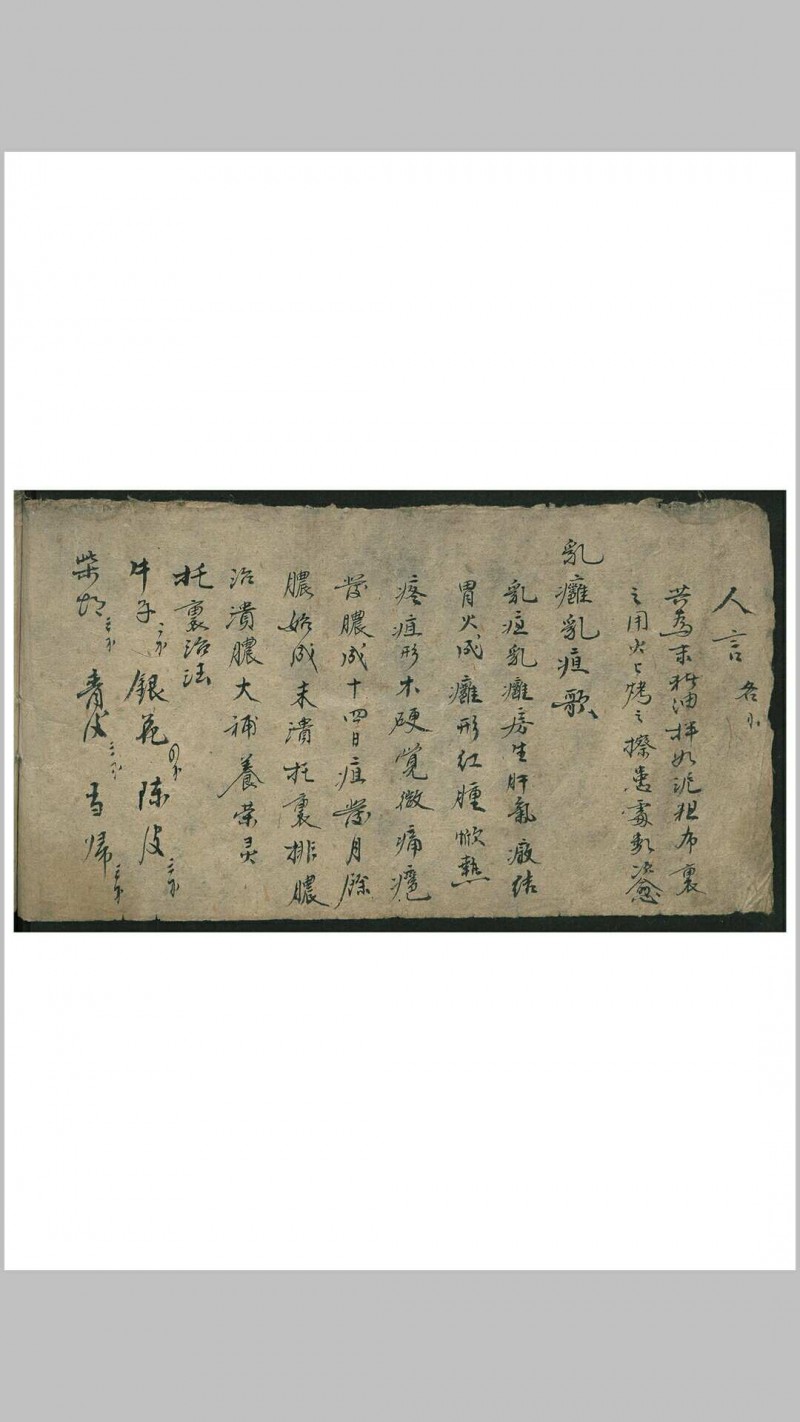 人言 各
共為末 油拌如泥粗布裹
之用火上烤之擦患處數次愈
乳癰乳疽歌
乳疽乳癰房生肝氣厥結
胃火成癰形紅腫焮熱
疼疽形木硬覺微痛癰
發膿成十四日疽發月餘
膿始成未潰托裏排膿
治潰膿大補養榮灵
托裏治法
牛子 銀花 陈皮
柴胡 青皮 当帰